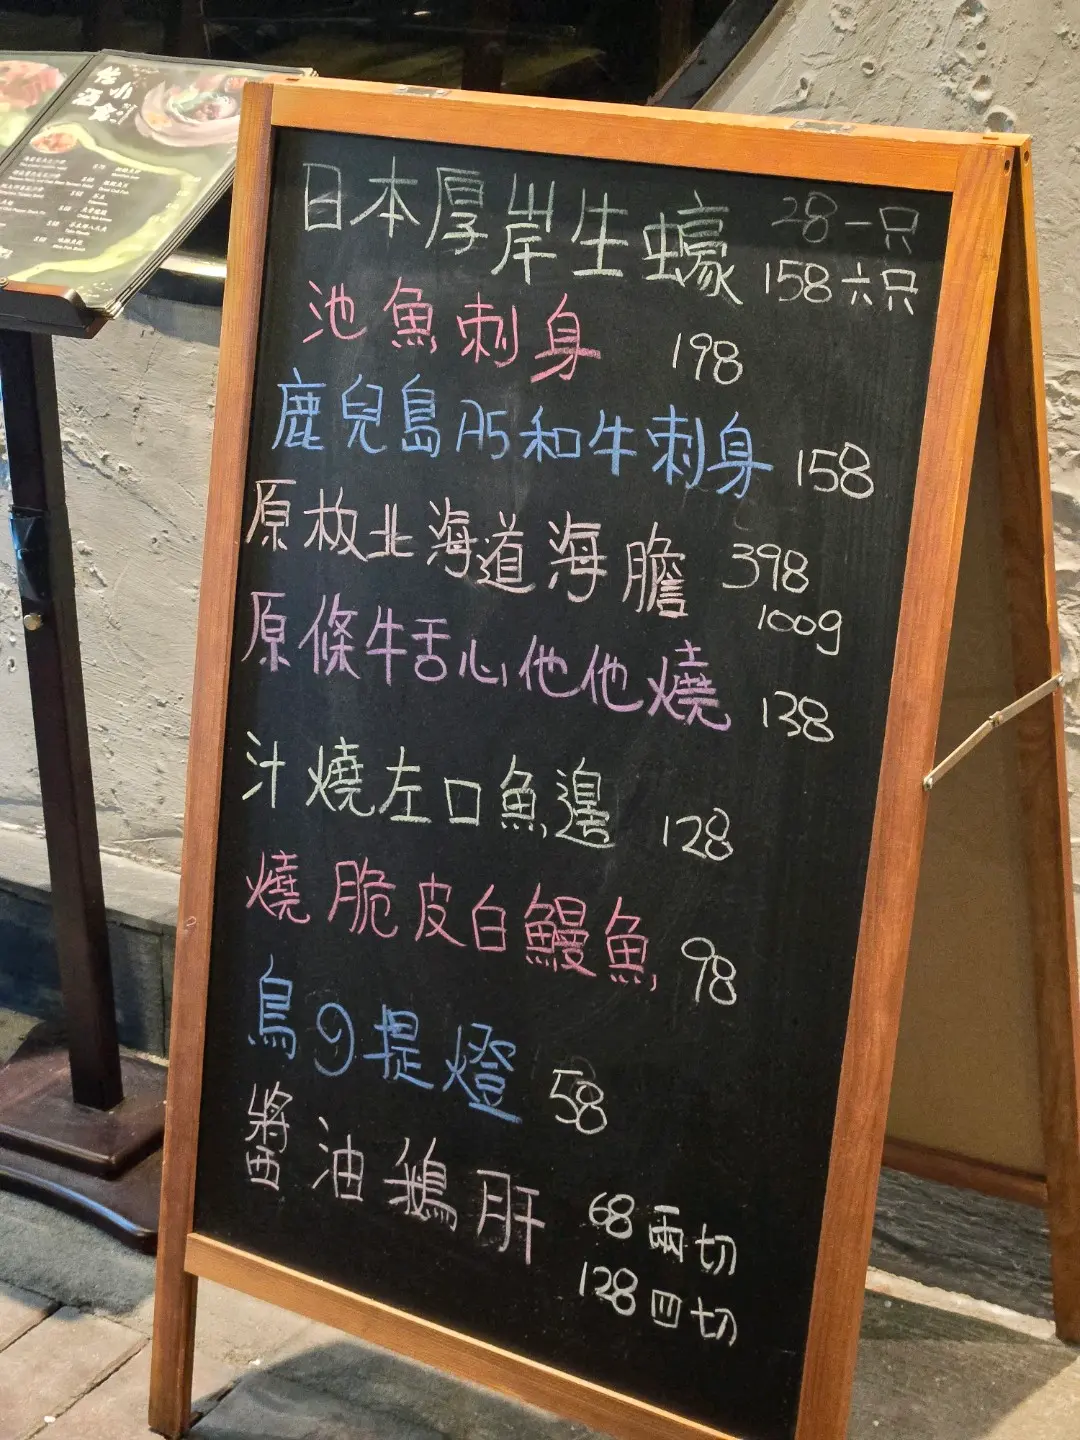 日本厚岸生蠔 28一只
158六只
池魚刺身 198
鹿兒島A5和牛刺身 158
原板北海道海膽 398
100g
原條牛舌心他他燒 138
汁燒左口魚邊 128
燒脆皮白鰻魚 98
鳥の提燈 58
醬油鵝肝 68兩切
128四切